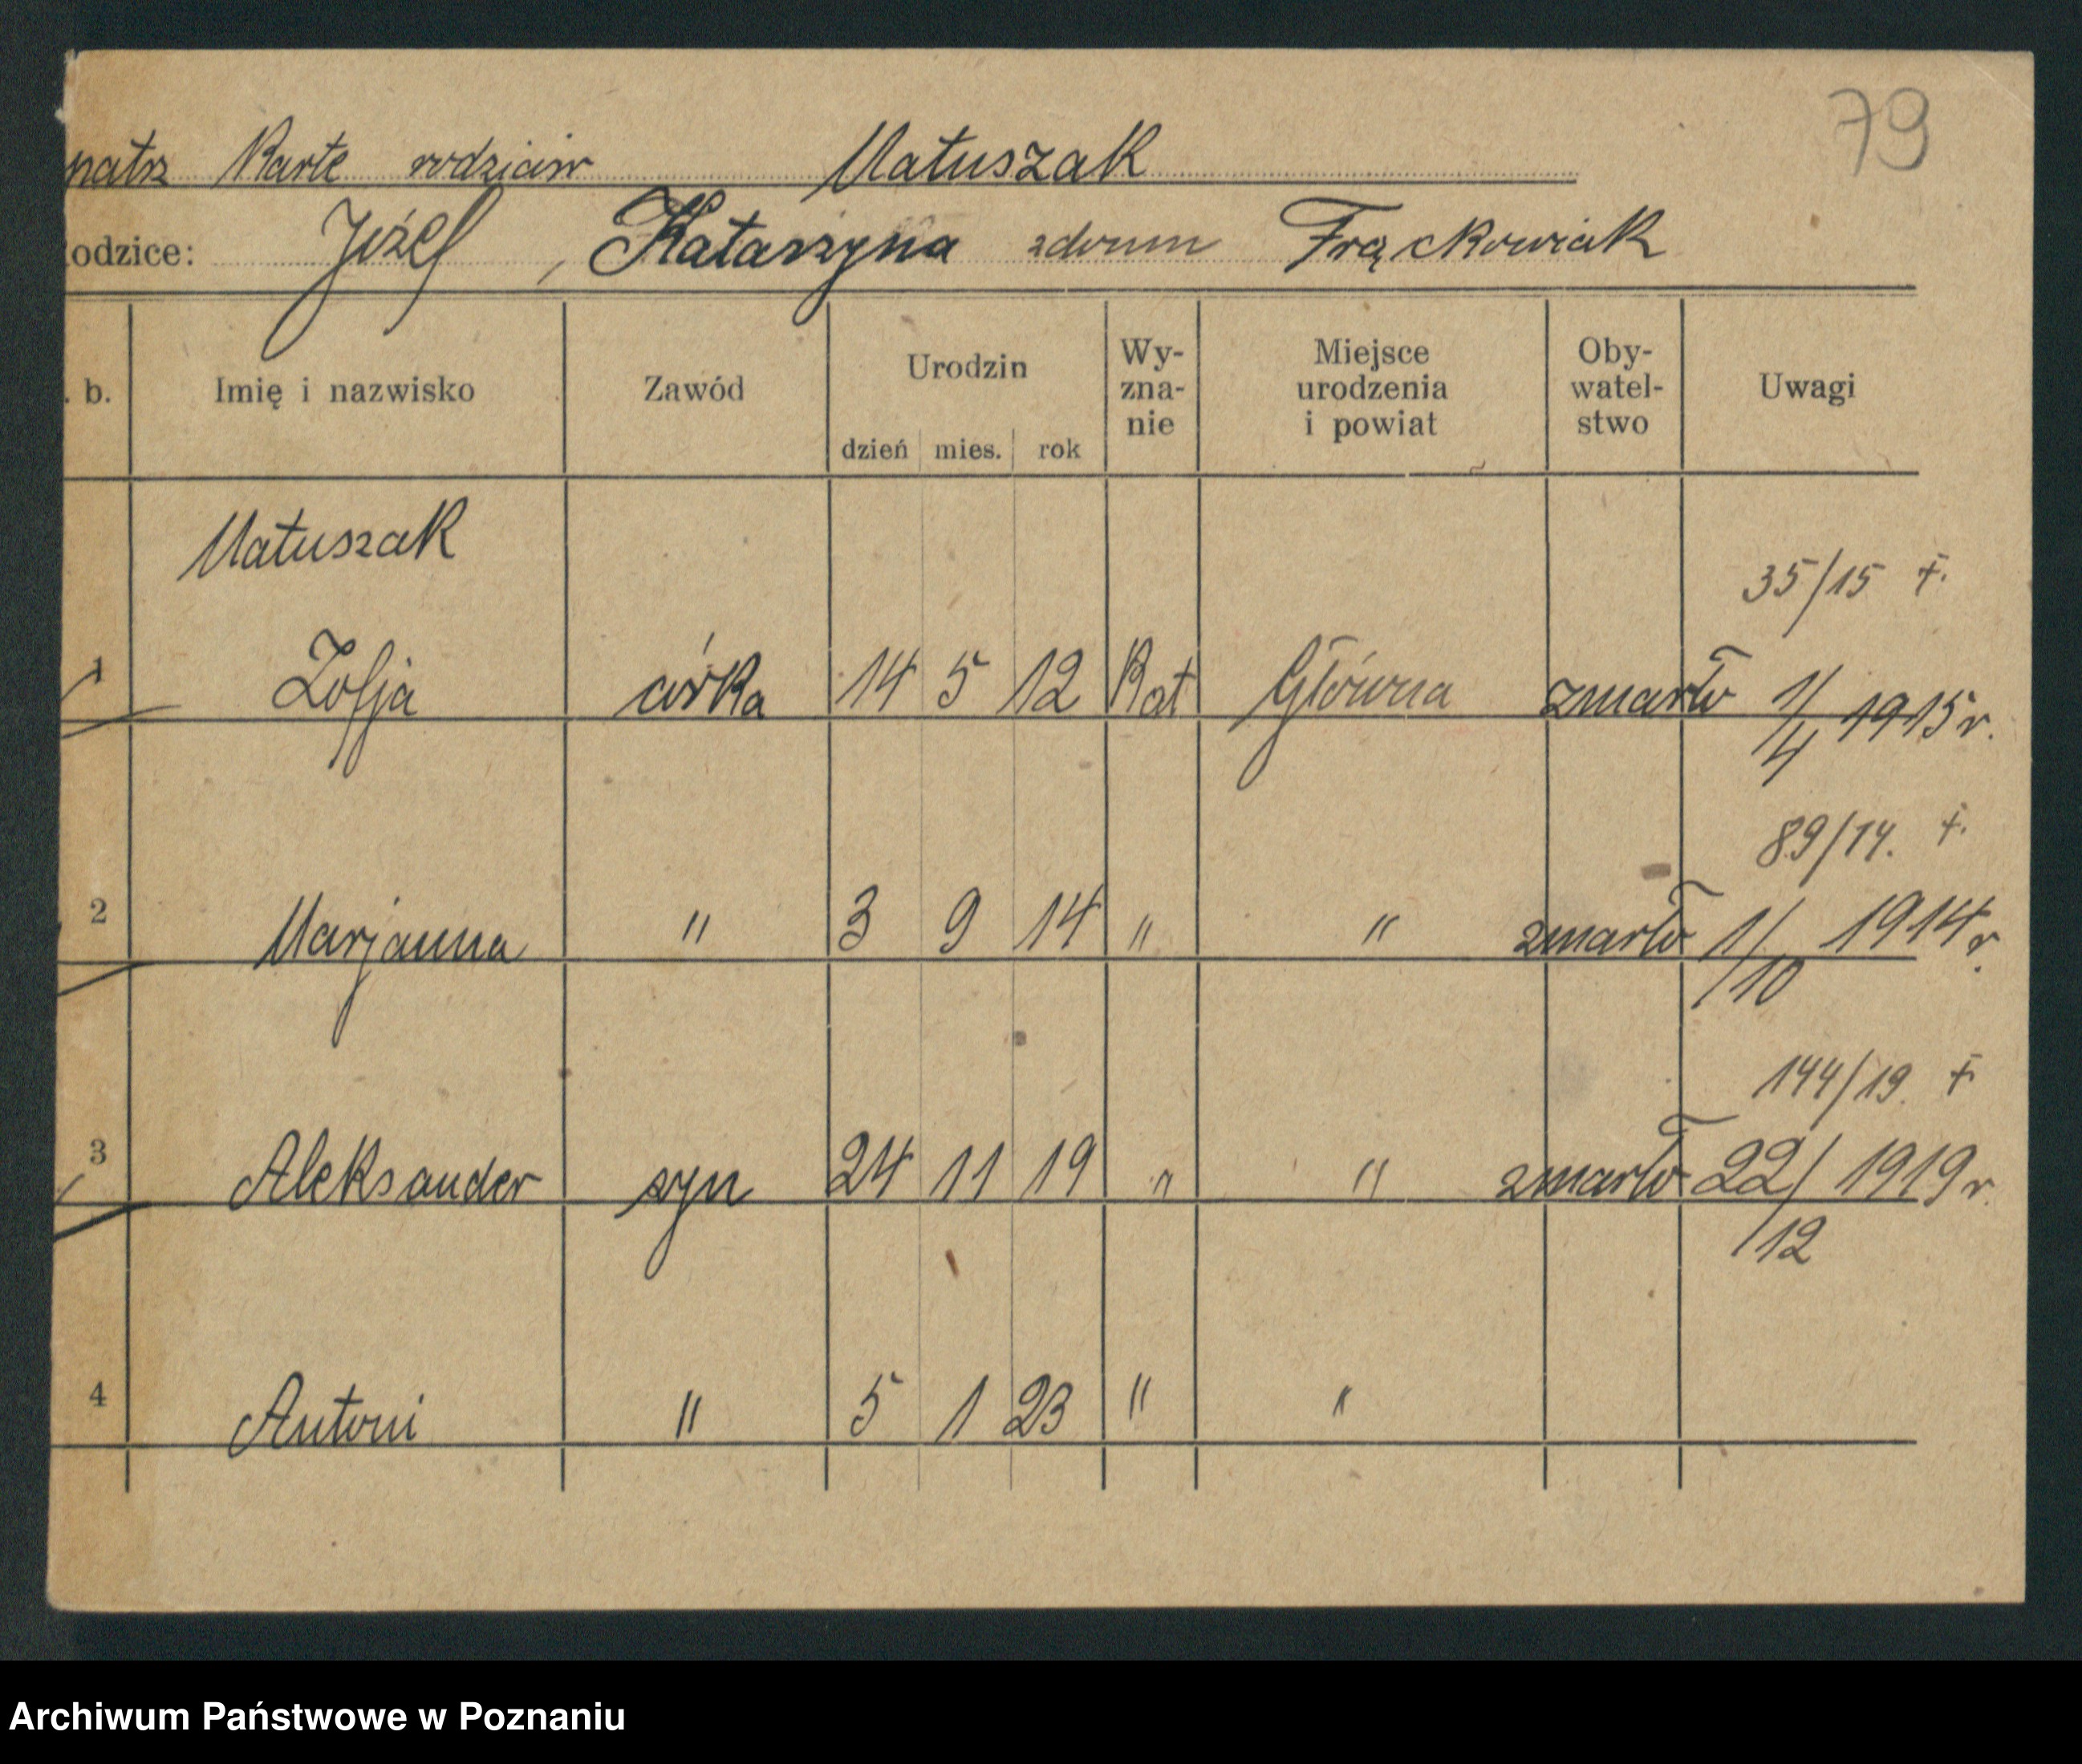 79
patrz Karte rodziców Matuszak
odzice: Józef, Katarzyna zdomu Frąckowiak
. b. Imię i nazwisko Zawód Urodzin dzień mies. rok Wy-zna-nie Miejsce urodzenia i powiat Oby-watel-stwo Uwagi
Matuszak
35/15 +.
1 Zofja córka 14 5 12 Kat Główna zmarła 1/4 1915 r.
89/14. +.
2 Marjanna " 3 9 14 " " zmarła 1/10 1914 r.
144/19. +
3 Aleksander syn 24 11 19 " " zmarł 22/12 1919 r.
4 Antoni " 5 1 23 " "
Archiwum Państwowe w Poznaniu